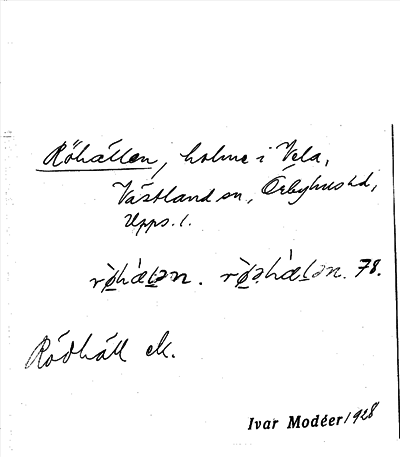 Röhällen, holme i Vela,
Västland sn, Örbyhus hd,
Upps. l.
78.
Rödhäll ek.
Ivar Modéer 1928